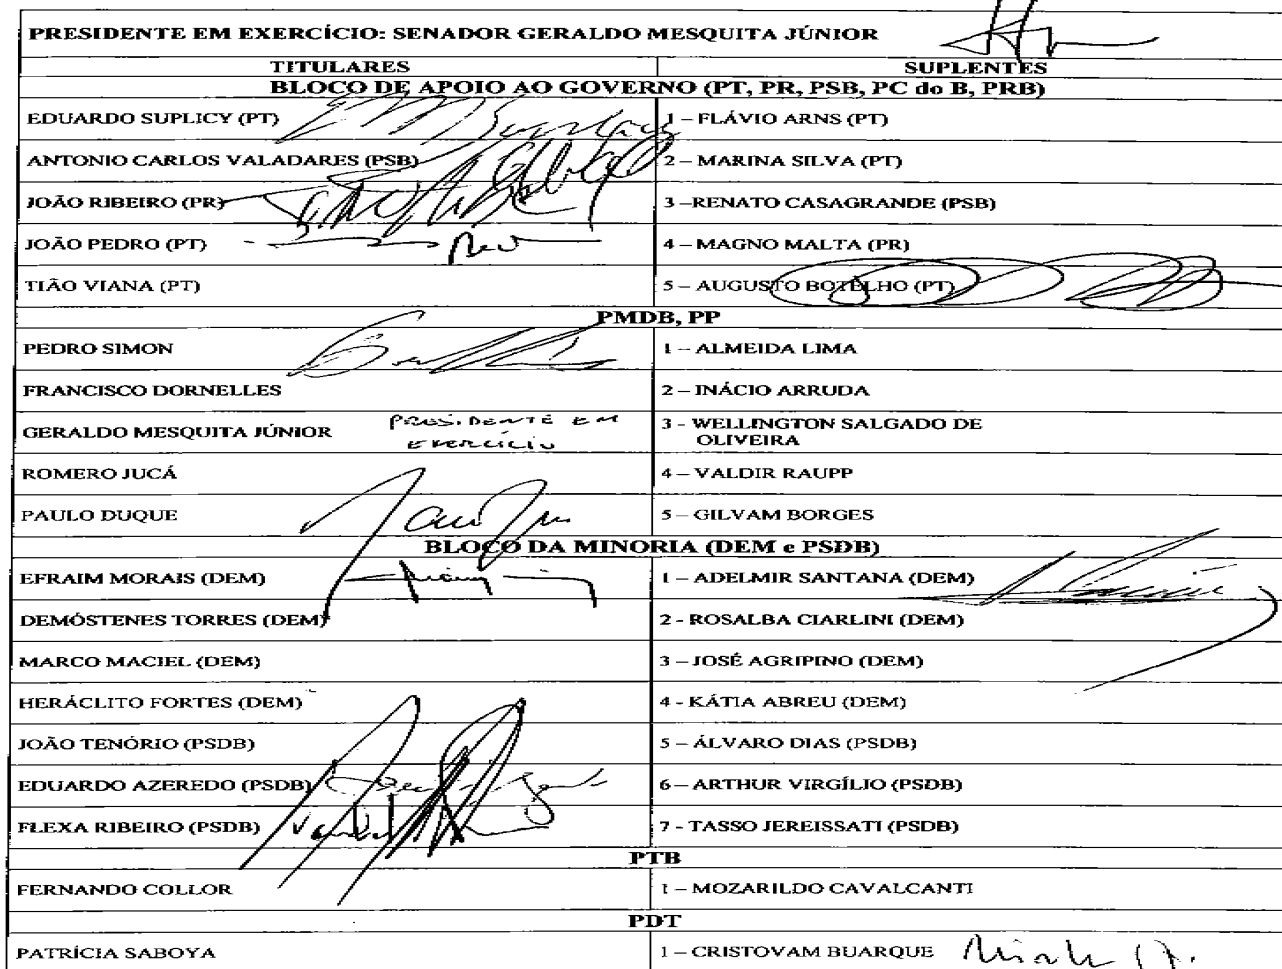 PRESIDENTE EM EXERCÍCIO: SENADOR GERALDO MESQUITA JÚNIOR
TITULARES SUPLENTES
BLOCO DE APOIO AO GOVERNO (PT, PR, PSB, PC do B, PRB)
EDUARDO SUPLICY (PT) 1 – FLÁVIO ARNS (PT)
ANTONIO CARLOS VALADARES (PSB) 2 – MARINA SILVA (PT)
JOÃO RIBEIRO (PR) 3 –RENATO CASAGRANDE (PSB)
JOÃO PEDRO (PT) 4 – MAGNO MALTA (PR)
TIÃO VIANA (PT) 5 – AUGUSTO BOTELHO (PT)
PMDB, PP
PEDRO SIMON 1 – ALMEIDA LIMA
FRANCISCO DORNELLES 2 – INÁCIO ARRUDA
GERALDO MESQUITA JÚNIOR PRESIDENTE EM EXERCÍCIO 3 - WELLINGTON SALGADO DE
OLIVEIRA
ROMERO JUCÁ 4 – VALDIR RAUPP
PAULO DUQUE 5 – GILVAM BORGES
BLOCO DA MINORIA (DEM e PSDB)
EFRAIM MORAIS (DEM) 1 – ADELMIR SANTANA (DEM)
DEMÓSTENES TORRES (DEM) 2 - ROSALBA CIARLINI (DEM)
MARCO MACIEL (DEM) 3 – JOSÉ AGRIPINO (DEM)
HERÁCLITO FORTES (DEM) 4 - KÁTIA ABREU (DEM)
JOÃO TENÓRIO (PSDB) 5 – ÁLVARO DIAS (PSDB)
EDUARDO AZEREDO (PSDB) 6 – ARTHUR VIRGÍLIO (PSDB)
FLEXA RIBEIRO (PSDB) 7 - TASSO JEREISSATI (PSDB)
PTB
FERNANDO COLLOR 1 – MOZARILDO CAVALCANTI
PDT
PATRÍCIA SABOYA 1 – CRISTOVAM BUARQUE